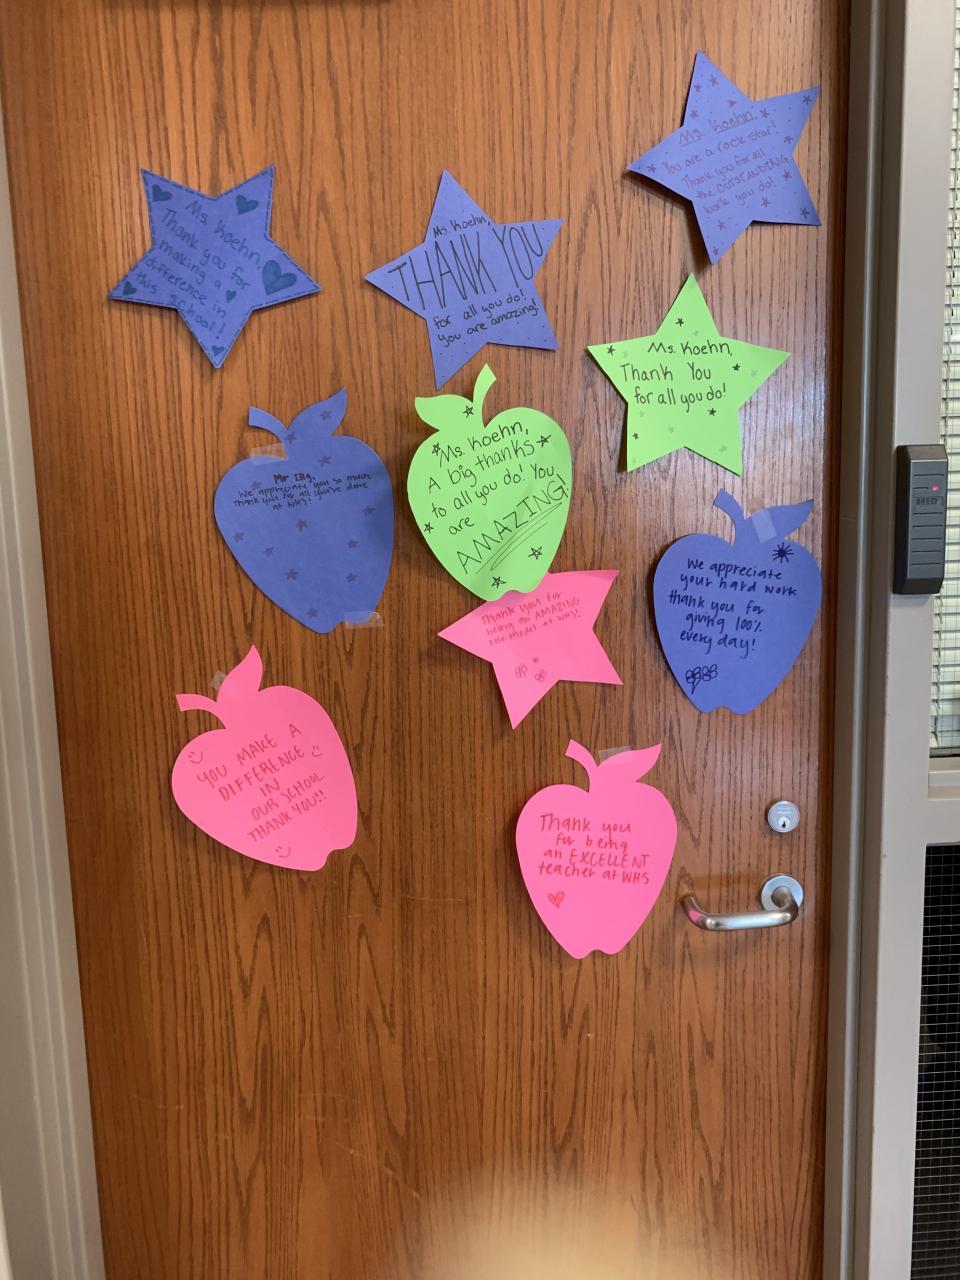 Ms. Koehn,
You are a rock star!
Thank you for all
the OUTSTANDING
work you do!
Ms. Koehn,
Thank you for
making a
difference in
this school!
Ms. Koehn,
THANK YOU
for all you do!
you are amazing!
Ms. Koehn,
Thank You
for all you do!
Mr. Ellg,
We appreciate you so much
Thank you for all you've done
at WHS!
Ms. Koehn,
A big thanks
to all you do! You
are
AMAZING!
We appreciate
your hard work
thank you for
giving 100%
every day!
Thank you for
being an AMAZING
role model at WHS!
YOU MAKE A
DIFFERENCE
IN
OUR SCHOOL
THANK YOU!!
Thank you
for being
an EXCELLENT
teacher at WHS
HID